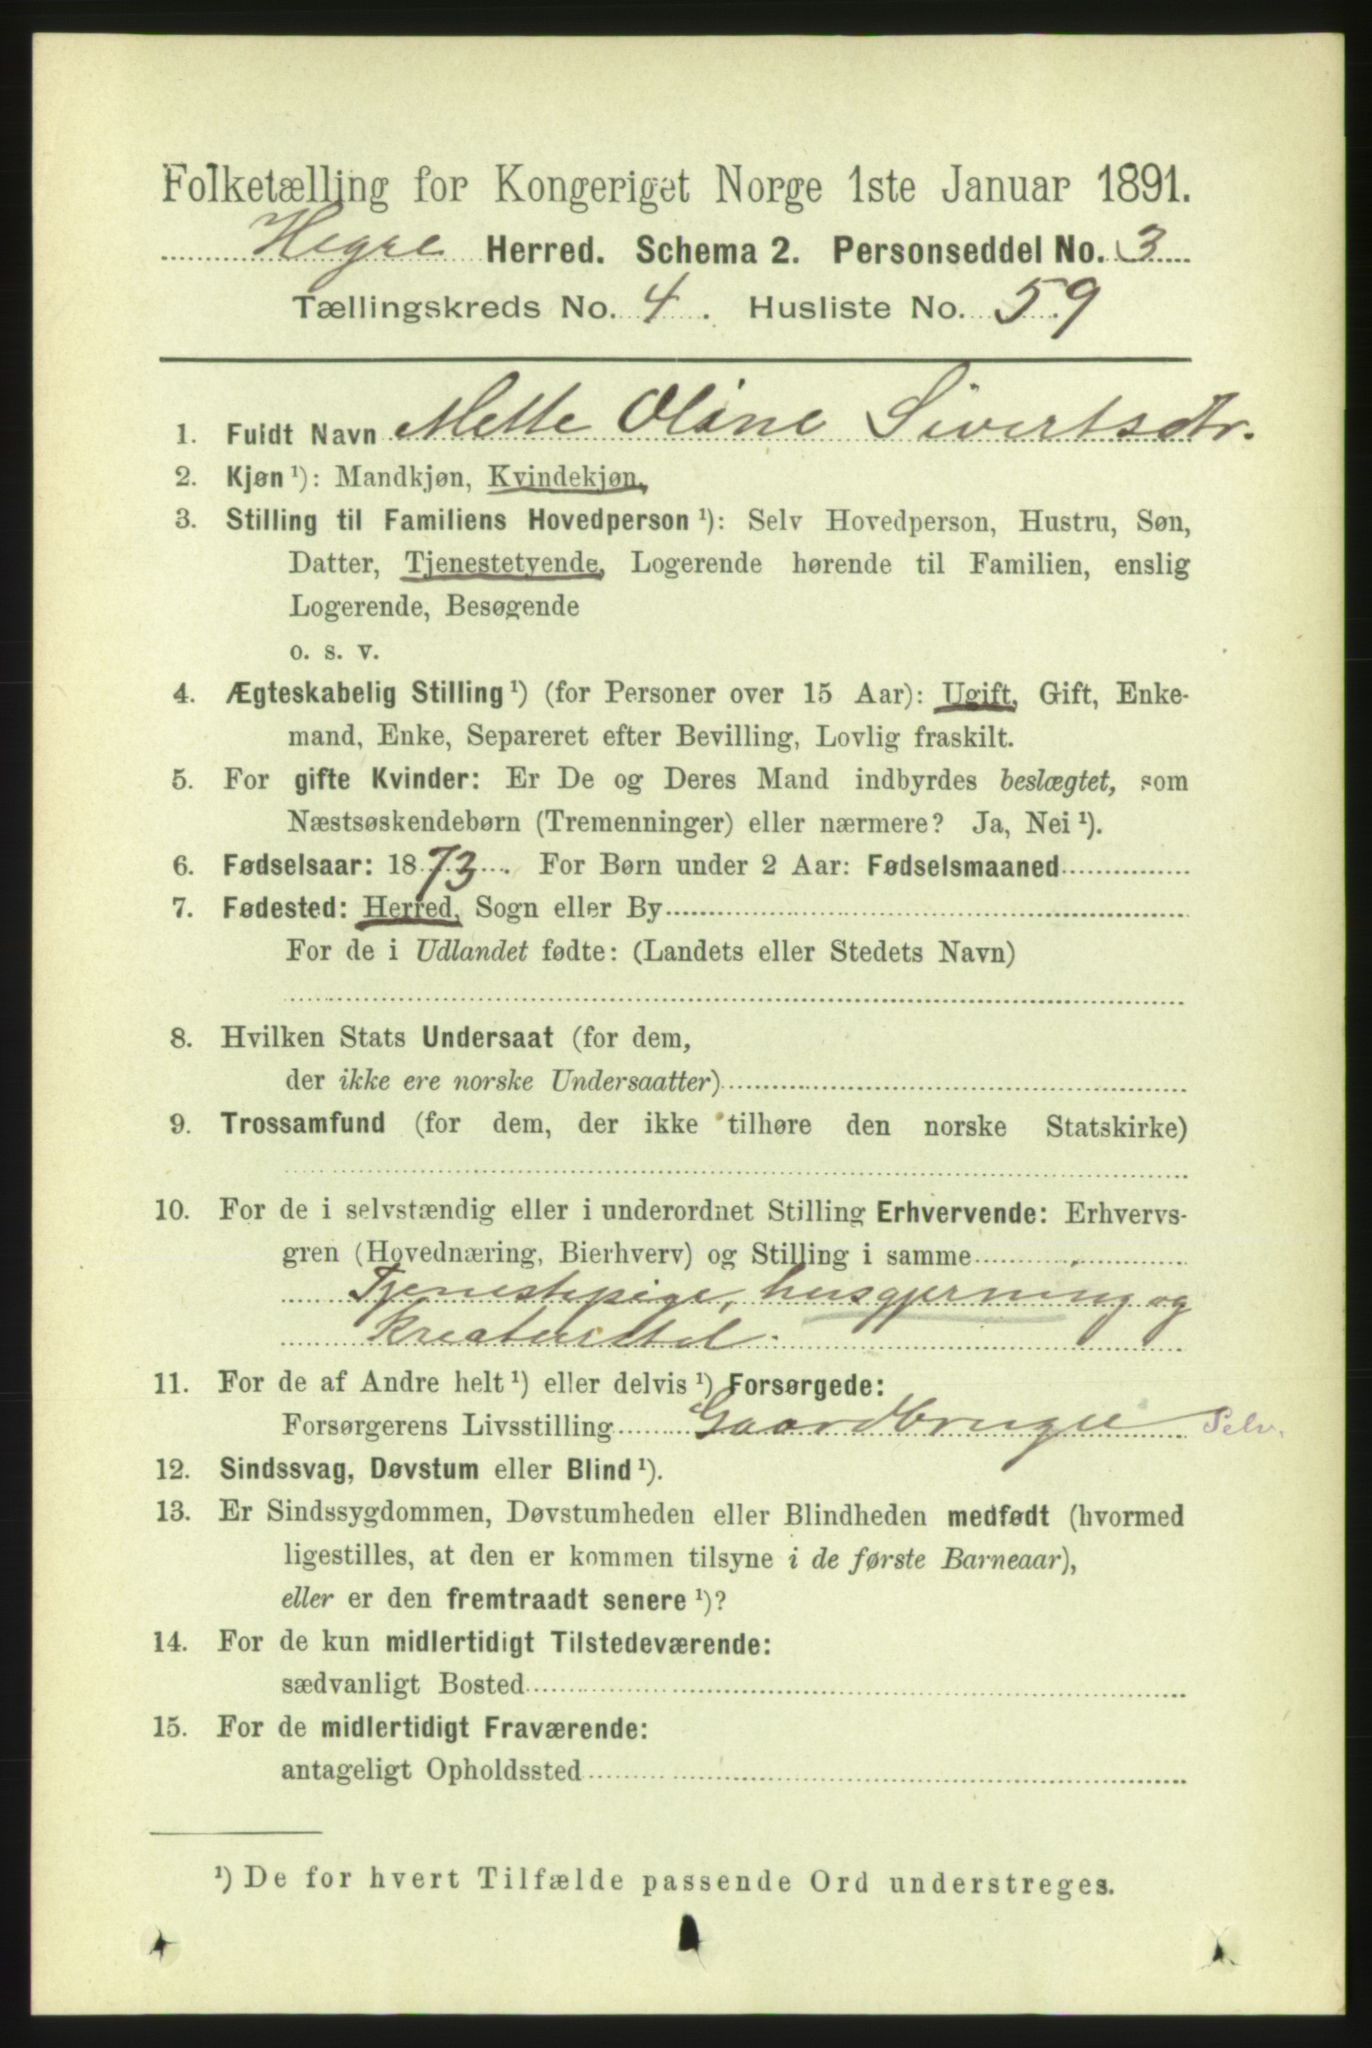 Folketælling for Kongeriget Norge 1ste Januar 1891.
Hegre Herred. Schema 2. Personseddel No. 3
Tællingskreds No. 4. Husliste No. 59
1. Fuldt Navn Mette Oline Sivertsdtr.
2. Kjøn ¹): Mandkjøn, Kvindekjøn.
3. Stilling til Familiens Hovedperson ¹): Selv Hovedperson, Hustru, Søn,
Datter, Tjenestetyende, Logerende hørende til Familien, enslig
Logerende, Besøgende
o. s. v.
4. Ægteskabelig Stilling ¹) (for Personer over 15 Aar): Ugift, Gift, Enke-
mand, Enke, Separeret efter Bevilling, Lovlig fraskilt.
5. For gifte Kvinder: Er De og Deres Mand indbyrdes beslægtet, som
Næstsøskendebørn (Tremenninger) eller nærmere? Ja, Nei ¹).
6. Fødselsaar: 1873. For Børn under 2 Aar: Fødselsmaaned
7. Fødested: Herred, Sogn eller By
For de i Udlandet fødte: (Landets eller Stedets Navn)
8. Hvilken Stats Undersaat (for dem,
der ikke ere norske Undersaatter)
9. Trossamfund (for dem, der ikke tilhøre den norske Statskirke)
10. For de i selvstændig eller i underordnet Stilling Erhvervende: Erhvervs-
gren (Hovednæring, Bierhverv) og Stilling i samme
Tjenestepige, husgjerning og
kreaturstel.
11. For de af Andre helt ¹) eller delvis ¹) Forsørgede:
Forsørgerens Livsstilling Gaardbruger Selv.
12. Sindssvag, Døvstum eller Blind ¹).
13. Er Sindssygdommen, Døvstumheden eller Blindheden medfødt (hvormed
ligestilles, at den er kommen tilsyne i de første Barneaar),
eller er den fremtraadt senere ¹)?
14. For de kun midlertidigt Tilstedeværende:
sædvanligt Bosted
15. For de midlertidigt Fraværende:
antageligt Opholdssted
¹) De for hvert Tilfælde passende Ord understreges.